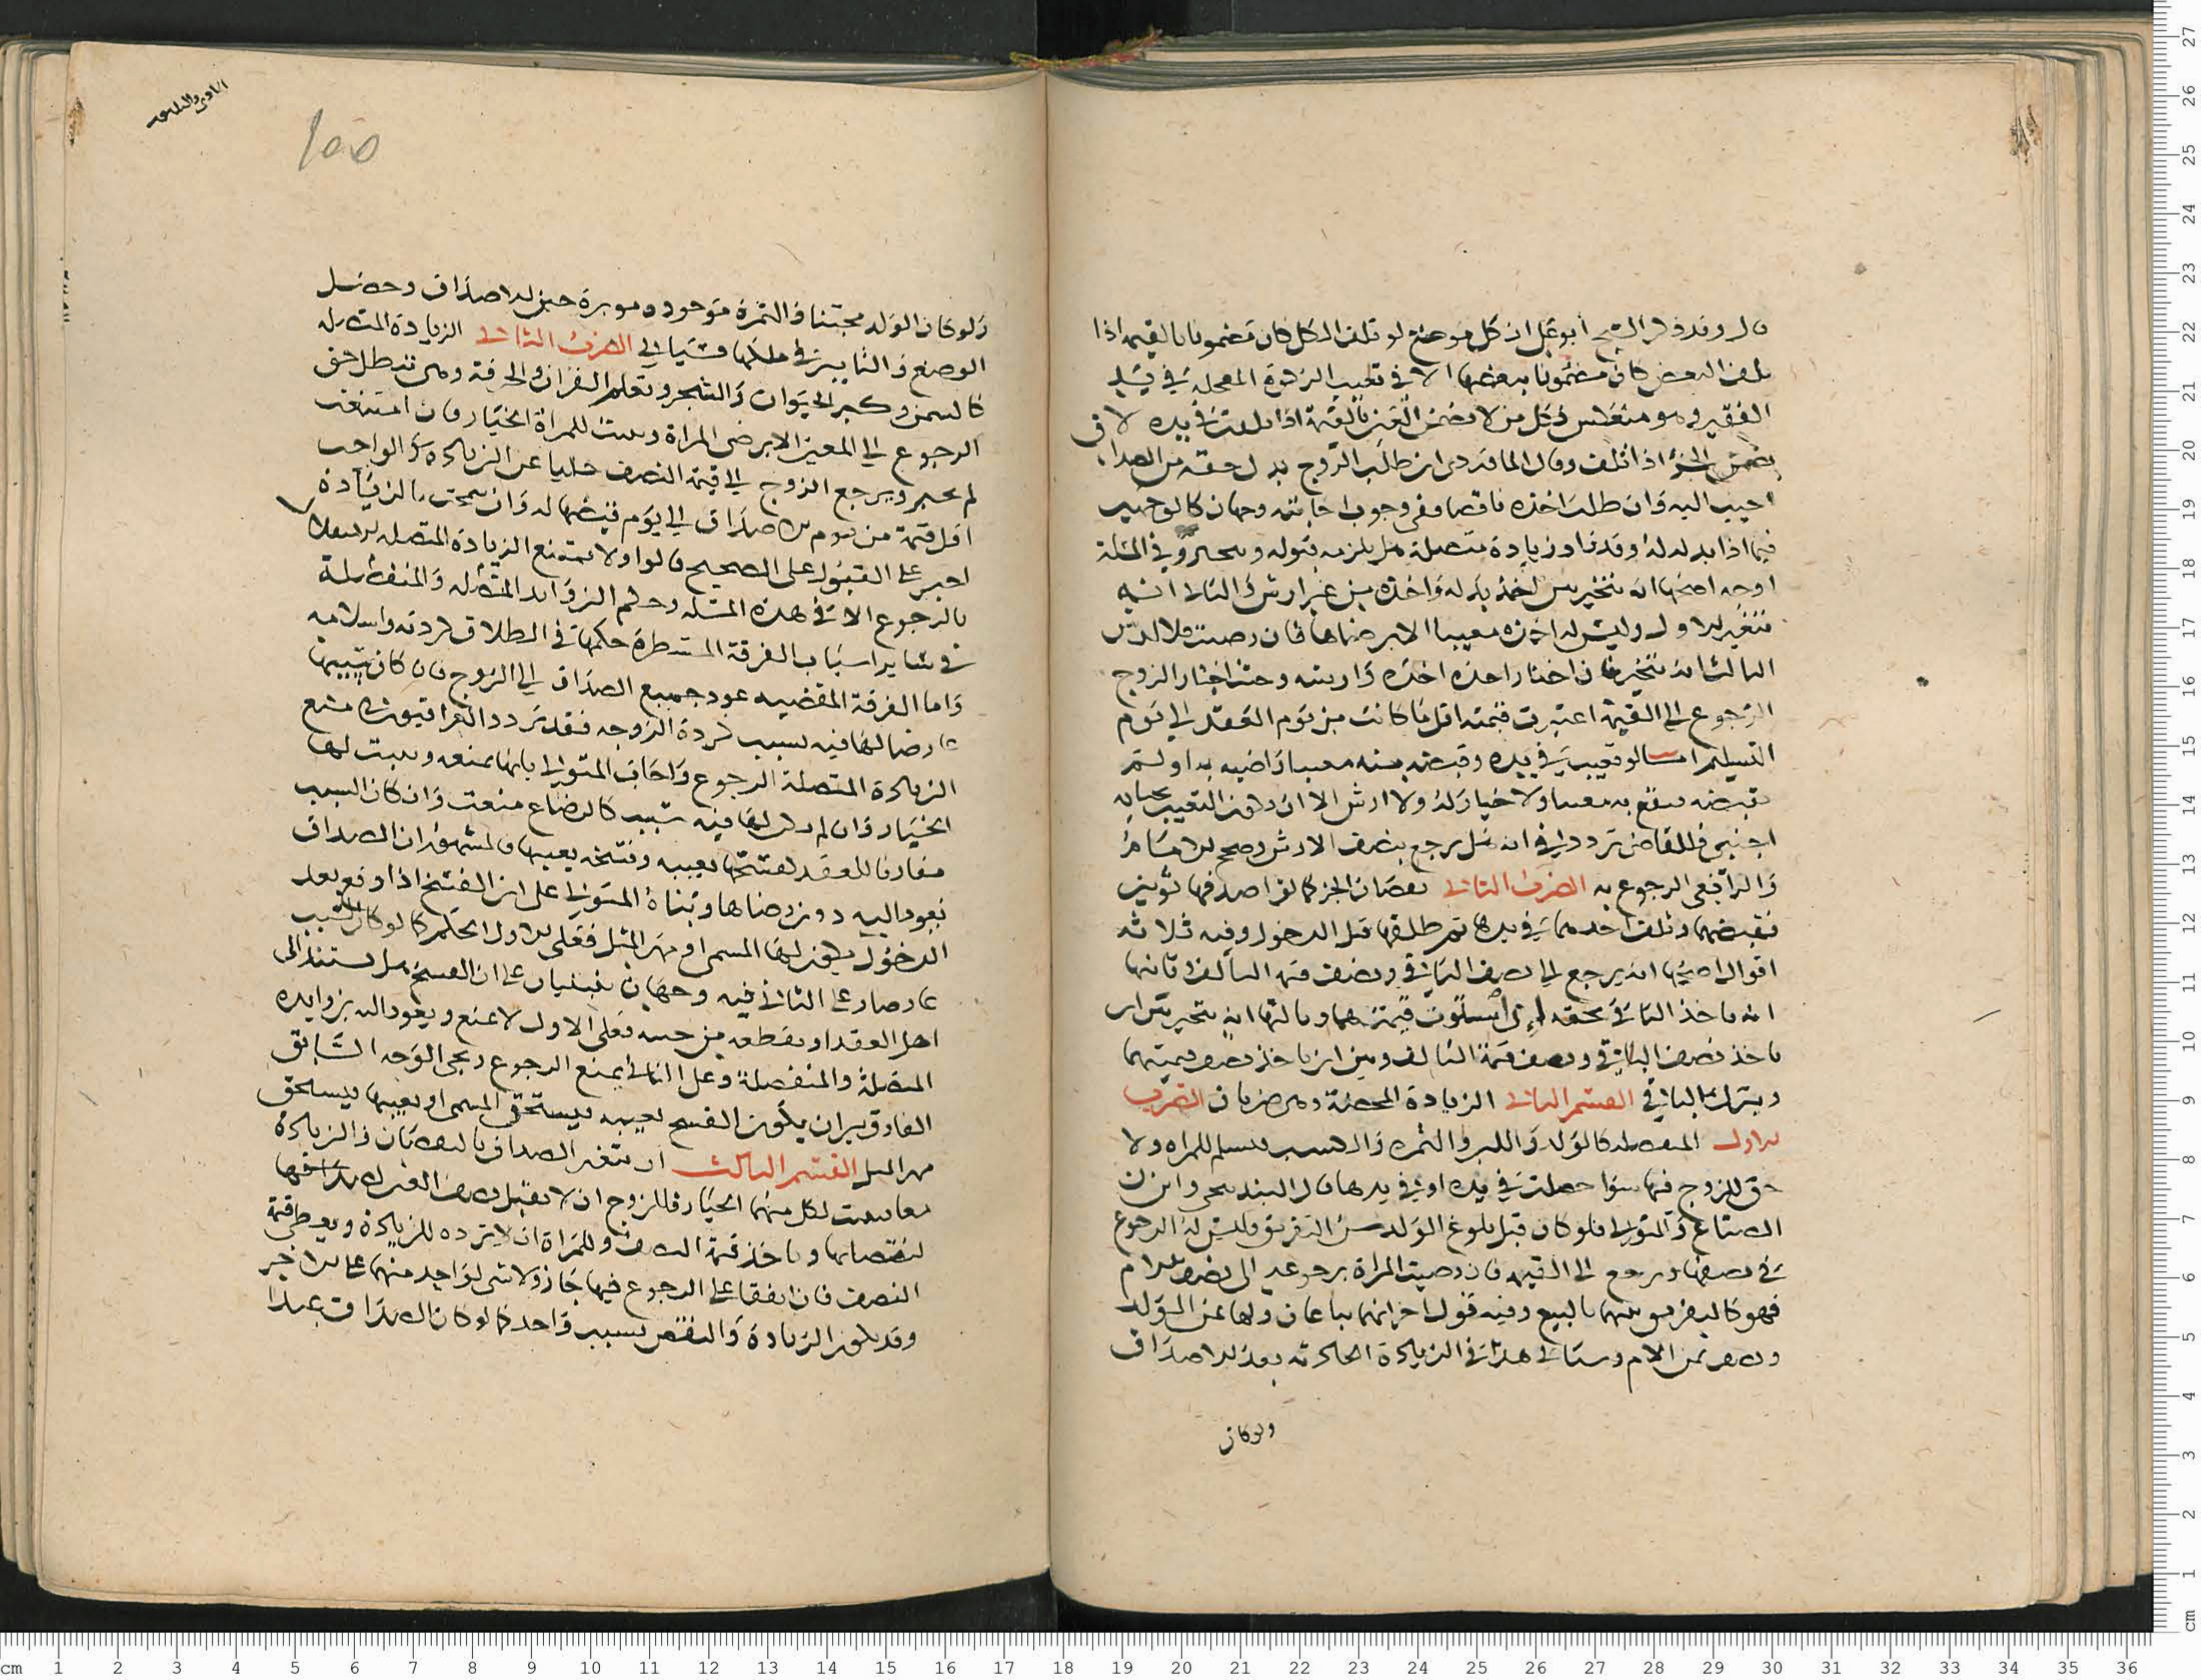 قال وقد ذكر الشيخ أبو علي ان كل موضع لو تلف الكل كان مضمونا بالقيمة اذا
تلف البعض كان مضمونا ببعضها الا في تعيب الزكوة المعجلة في يد
الفقير
اذا تلف وقال الماوردي ان طلب الزوج بدل حقه من الصداق
اجيب اليه وان طلب اخذه ناقصا ففي وجوب اجابته وجهان كالوجهين
فيما اذا بذلت له وقد زاد زيادة متصلة هل يلزمه قبوله وفي المسئلة
اوجه اصحها انه يتخير بين اخذ بدله واخذه من غير ارش والثاني انه
يتغير الاول وليس له اخذه معيبا الا برضاها فان رضيت فلا ارش
الثالث انه يتخير فان اختار اخذه اخذه وارشه وحيث اختار الزوج
الرجوع الي القيمة اعتبرت قيمته اقل ما كانت من يوم العقد الي يوم
التسليم اما لو تعيب في يده وقبضته منه معيبا راضيه به او لم
تقبضه فيقنع به معيبا ولا خيار له ولا ارش الا ان يكون التعيب بجناية
اجنبي فللقاضي تردد في انه هل يرجع بنصف الارش وصحح الامام
والرافعي الرجوع به الضرب الثاني نقصان الجزء كما لو اصدقها ثوبين
فقبضتهما وتلف احدهما في يدها ثم طلقها قبل الدخول وفيه ثلاثة
اقوال اصحها انه يرجع الي نصف الباقي ونصف قيمة التالف وثانيها
انه ياخذ الباقي بحقه ان استوت قيمتهما وثالثها انه يتخير بين ان
ياخذ نصف الباقي ونصف قيمة التالف وبين ان ياخذ نصف قيمتهما
ويترك الباقي القسم الثاني الزيادة المحضة وهي ضربان الضرب
الاول المنفصله كالولد واللبن والثمره والكسب فيسلم للمراه ولا
حق للزوج فيها سوا حصلت في يده او في يدها قال البندنيجي وابن
الصباغ والمتولي فلو كان قبل بلوغ الولد سن التفريق فليس له الرجوع
في نصفها ويرجع الي القيمه فان رضيت المراة برجوعه الي نصف الام
فهو كالتفريق بينهما بالبيع وفيه قول اخر انهما يباعان ولها ثمن الولد
ونصف ثمن الام وستاتي هذا في الزيادة الحادثه بعد الاصداق
ولو كان
١٥٥
ولو كان الولد مجتنا والثمرة موجوده موبرة حين الاصداق وحصل
الوضع والتابير في ملكها فسياتي الضرب الثاني الزيادة المتصله
كالسمن وكبر الحيوان والشجر وتعلم القران والحرفة وهي تبطل حق
الرجوع الي المعين الا برضى المراة ويثبت للمراة الخيار فان امتنعت
لم تجبر ويرجع الزوج الي قيمة النصف خليا عن الزيادة والواجب
اقل قيمة من يوم الاصداق الي يوم قبضها له وان سمحت بالزيادة
اجبر علي القبول على الصحيح قالوا ولا تمتنع الزيادة المتصله للاستقلال
بالرجوع الا في هذه المسئله وحكم الزوايد المتصله والمنفصلة
في ساير اسباب الفرقة المشطرة حكمها في الطلاق كردته واسلامه
واما الفرقة المقتضيه عود جميع الصداق الي الزوج فان كان سببها
عارضا لها فيه بسبب كردة الزوجه فقد تردد العراقيون
الزيادة المتصلة الرجوع واجاب المتولي بانها تمنعه ويثبت لها
الخيار وان لم يكن لها فيه سبب كالرضاع منعت وان كان السبب
مقارنا للعقد كفسخها بعيبه وفسخه بعيبها فالمشهور ان الصداق
يعود اليه دون رضاها وبناه المتولي على ان الفسخ اذا وقع بعد
الدخول يكون لها المسمى او مهر المثل فعلى الاول الحكم كما لو كان السبب
عارضا وعلي الثاني فيه وجهان يبنيان علي ان الفسخ هل يستند الى
اصل العقد او يقطعه من حينه فعلى الاول لا يمنع ويعود اليه بزوايده
المتصلة والمنفصلة وعلى الثاني يمنع الرجوع ويجي الوجه السابق
الفارق بين ان يكون الفسخ بعيبه فيستحق المسمى او بعيبها فيستحق
مهر المثل القسم الثالث ان يتغير الصداق بالنقصان والزيادة
معا فيثبت لكل منهما الخيار فللزوج ان لا يقبل نصف العين
لنقصانها وياخذ قيمة النصف وللمراة ان لا ترده للزيادة ويعطي قيمة
النصف فان اتفقا علي الرجوع فيها جاز ولا شي لواحد منهما علي الاخر
وقد تكون الزيادة والنقص بسبب واحد كما لو كان الصداق عبدا